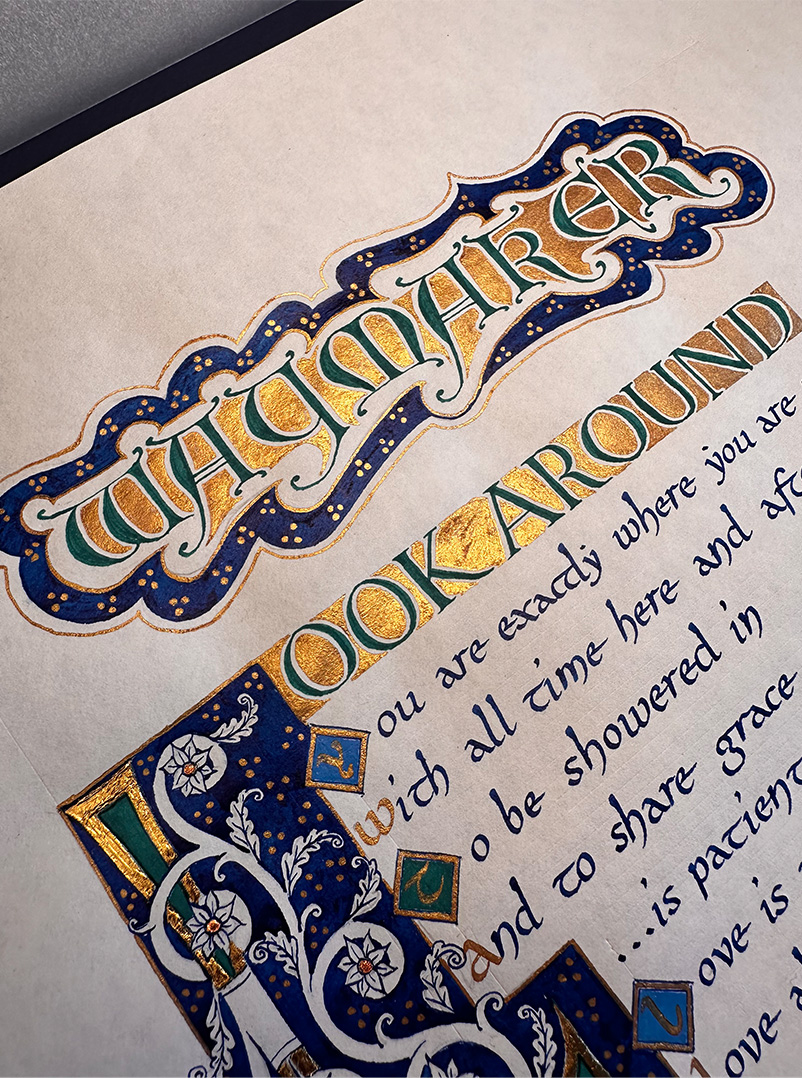 WAYMAKER
LOOK AROUND
You are exactly where you are
with all time here and
To be showered in
And to share grace
...is patient
Love is
Love